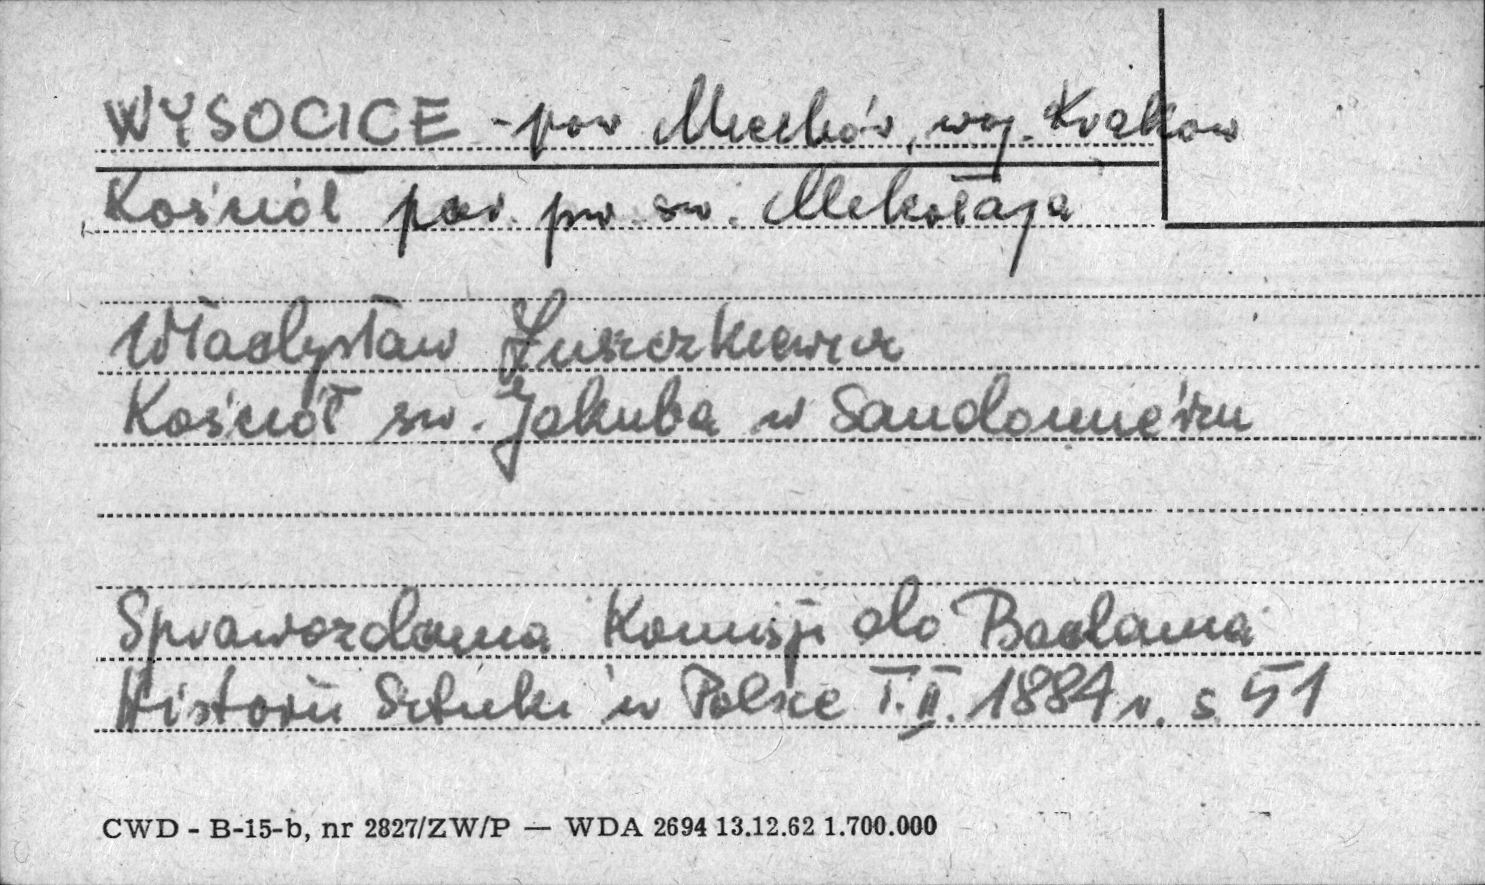 WYSOCICE - pow Miechów, woj. Kraków
Kościół par. pw. św. Mikołaja
Władysław Łuszczkiewicz
Kościół św. Jakuba w Sandomierzu
Sprawozdania Komisji do Badania
Historii Sztuki w Polsce T. II. 1884 r. s 51
CWD - B-15-b, nr 2827/ZW/P — WDA 2694 13.12.62 1.700.000